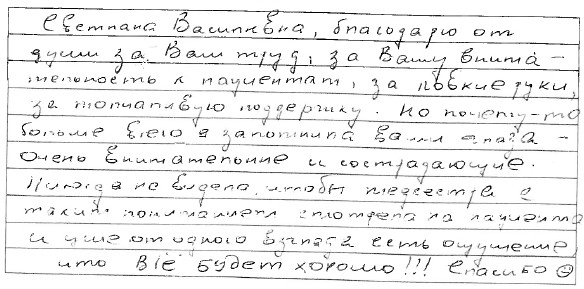 Светлана Васильевна, благодарю от
души за Ваш труд, за Вашу внима-
тельность к пациентам, за ловкие руки,
за молчаливую поддержку. Но почему-то
больше всего я запомнила Ваши глаза -
очень внимательные и сострадающие.
Никогда не видела, чтобы медсестра с
таким пониманием смотрела на пациента
и уже от одного взгляда есть ощущение,
что всё будет хорошо!!! Спасибо ☺